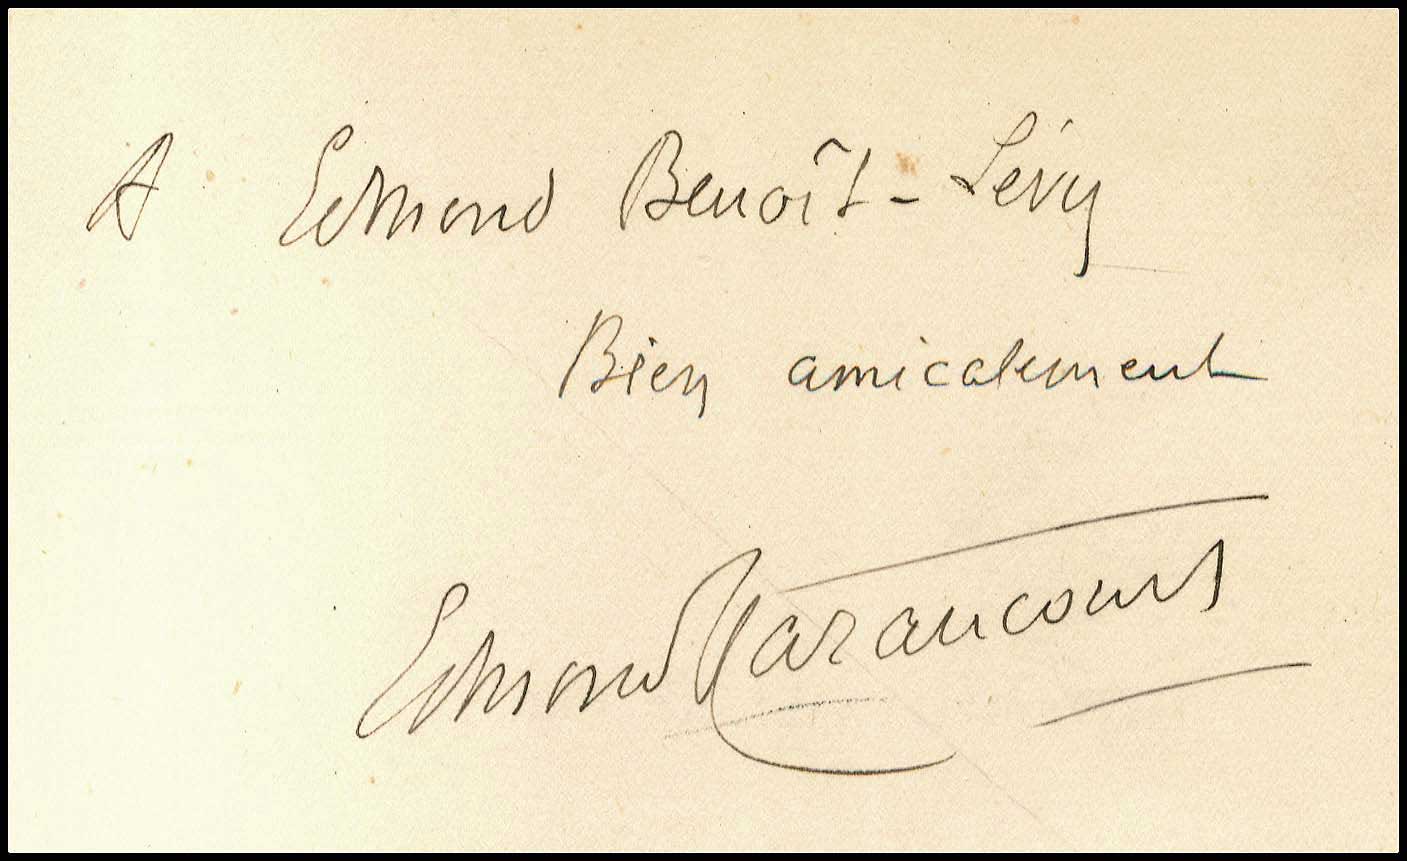 A Edmond Benoît-Lévy
Bien amicalement
Edmond Haraucourt